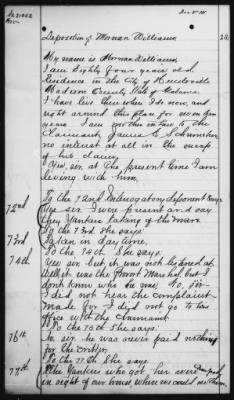 Deposition of Mornan Williams
My name is Mornan Williams
I am Eighty four years old
Residence in the City of Huntsville
Madison County State of Alabama
I have lived there where I do now, and
right around this place for seven
years. I am mother in law to the
Claimant, James E. Schrimsher
no interest at all in the
of his claim.
Yes, sir at the present time I am
living with him.
To the 72nd Interrogatory deponent says
72nd
Yes sir. I was present and saw
the Yankees taking of the mare.
To the 73rd she says:
73rd
Taken in day time.
74th
To the 74th She says:
Yes sir but it was not
it was the Provost Marshal, but I
don't know who he was. No, sir
I did not hear the complaint
made for I did not go to the
office with the Claimant.
To the 76th she says:
76th
No sir he was never paid nothing
for the
To the 77th She says
77th
The Yankees who got her were
in sight of our house, where we could see them